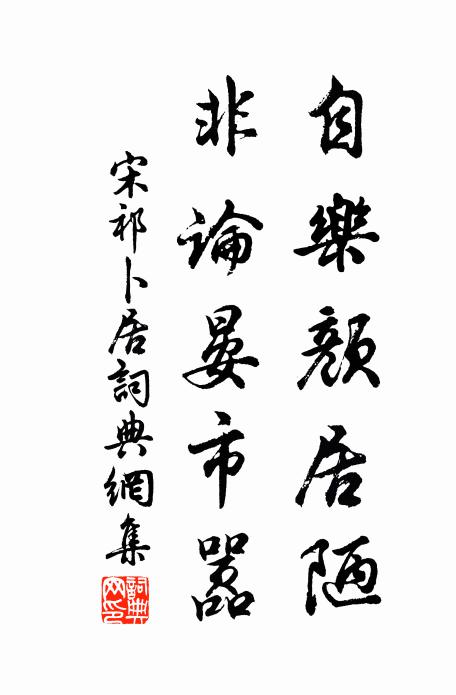 自樂顏居陋
非論晏市囂
宋祁卜居詞典網集
詞典
网印